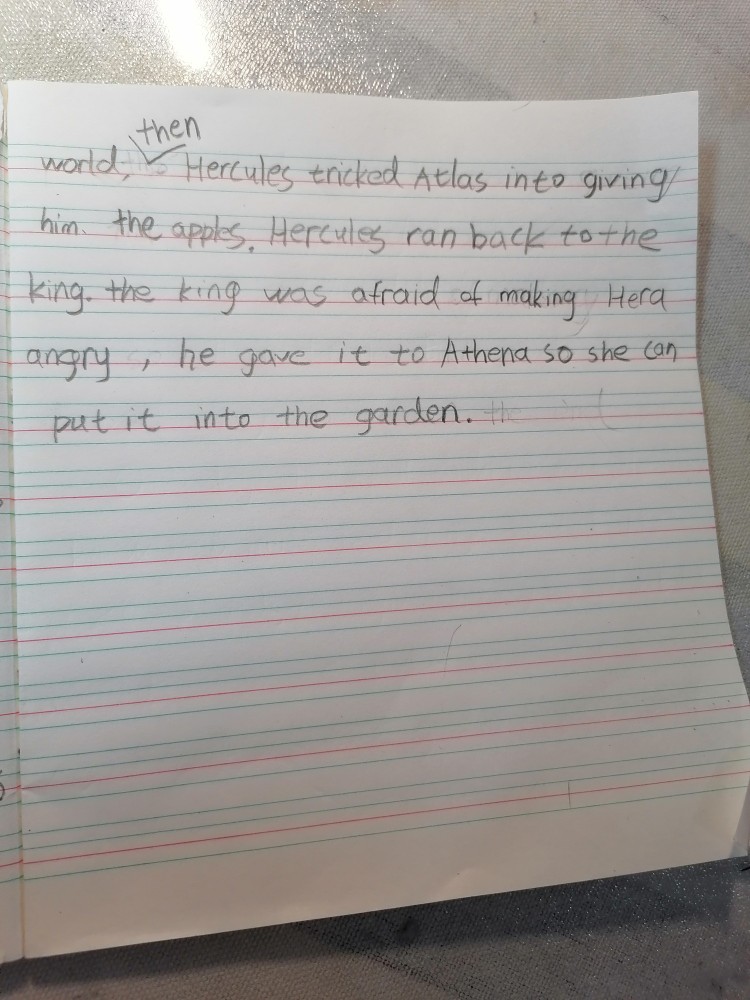 then
world, Hercules tricked Atlas into giving
him. the apples. Hercules ran back to the
king. the king was afraid of making Hera
angry, he gave it to Athena so she can
put it into the garden.